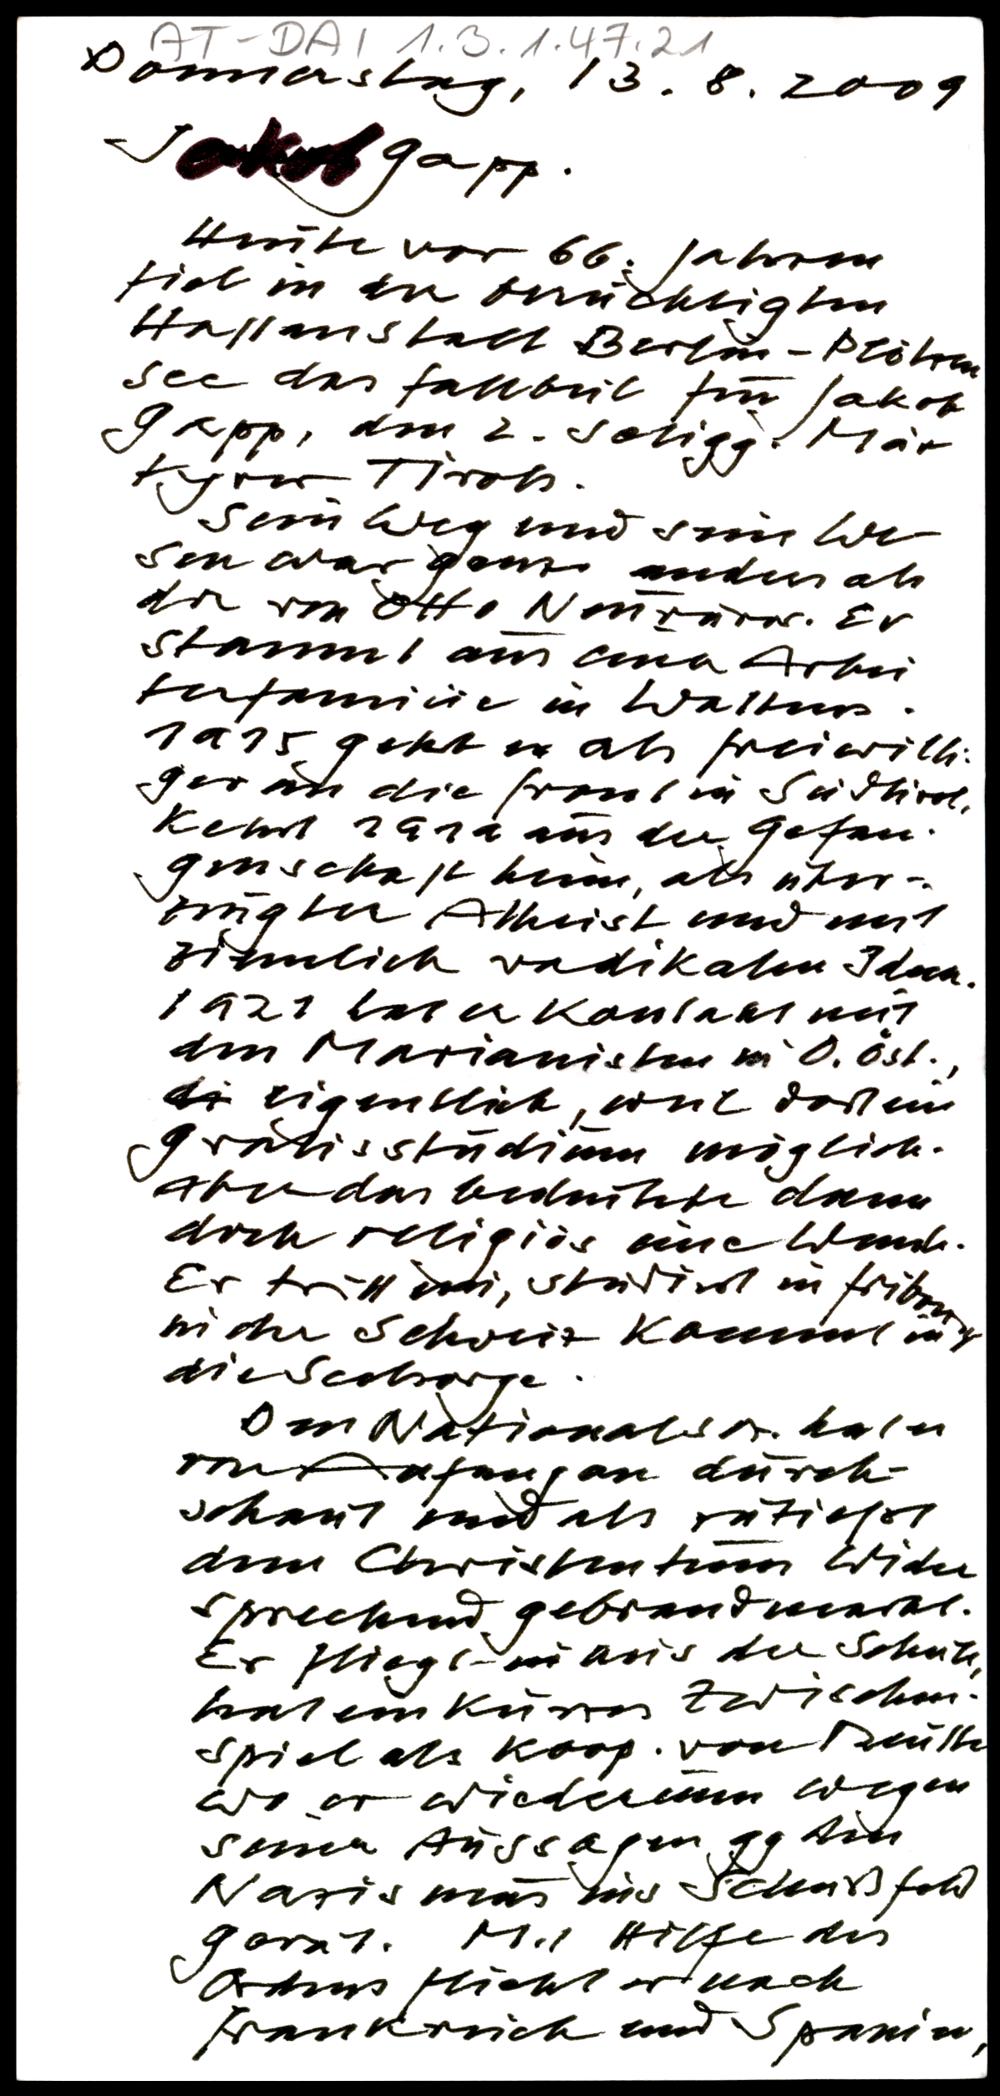 AT-DAI 1.3.1.47.21
Donnerstag, 13.8.2009
Jakob Gapp.
Heute vor 66. Jahren
fiel in der berüchtigten
Haftanstalt Berlin-Plötzen
see das Fallbeil für Jakob
Gapp, den 2. seligg. Mär
tyrer Tirols.
Sein Weg und sein We-
sen war ganz anders als
der von Otto Neururer. Er
stammt aus einer Arbei
terfamilie in Wattens.
1915 geht er als Freiwilli-
ger an die Front in Südtirol,
kehrt 1919 aus der Gefan-
genschaft heim, als über-
zeugter Atheist und mit
ziemlich radikalen Ideen.
1921 hat er Kontakt mit
den Marianisten in O.Öst.,
eigentlich, weil dort ein
Gratisstudium möglich.
Aber das bedeutete dann
doch religiös eine Wende.
Er tritt ein, studiert in Fribourg
in der Schweiz kommt in
die Seelsorge.
Den Nationalsoz. hat er
von Anfang an durch-
schaut und als zutiefst
dem Christentum wider
sprechend gebrandmarkt.
Er fliegt aus der Schule,
hat ein kurzes Zwischen-
spiel als Koop. von Reutte
wo er wiederum wegen
seiner Aussagen gg den
Nazismus ins Schußfeld
gerät. Mit Hilfe des
Ordens flieht er nach
Frankreich und Spanien,